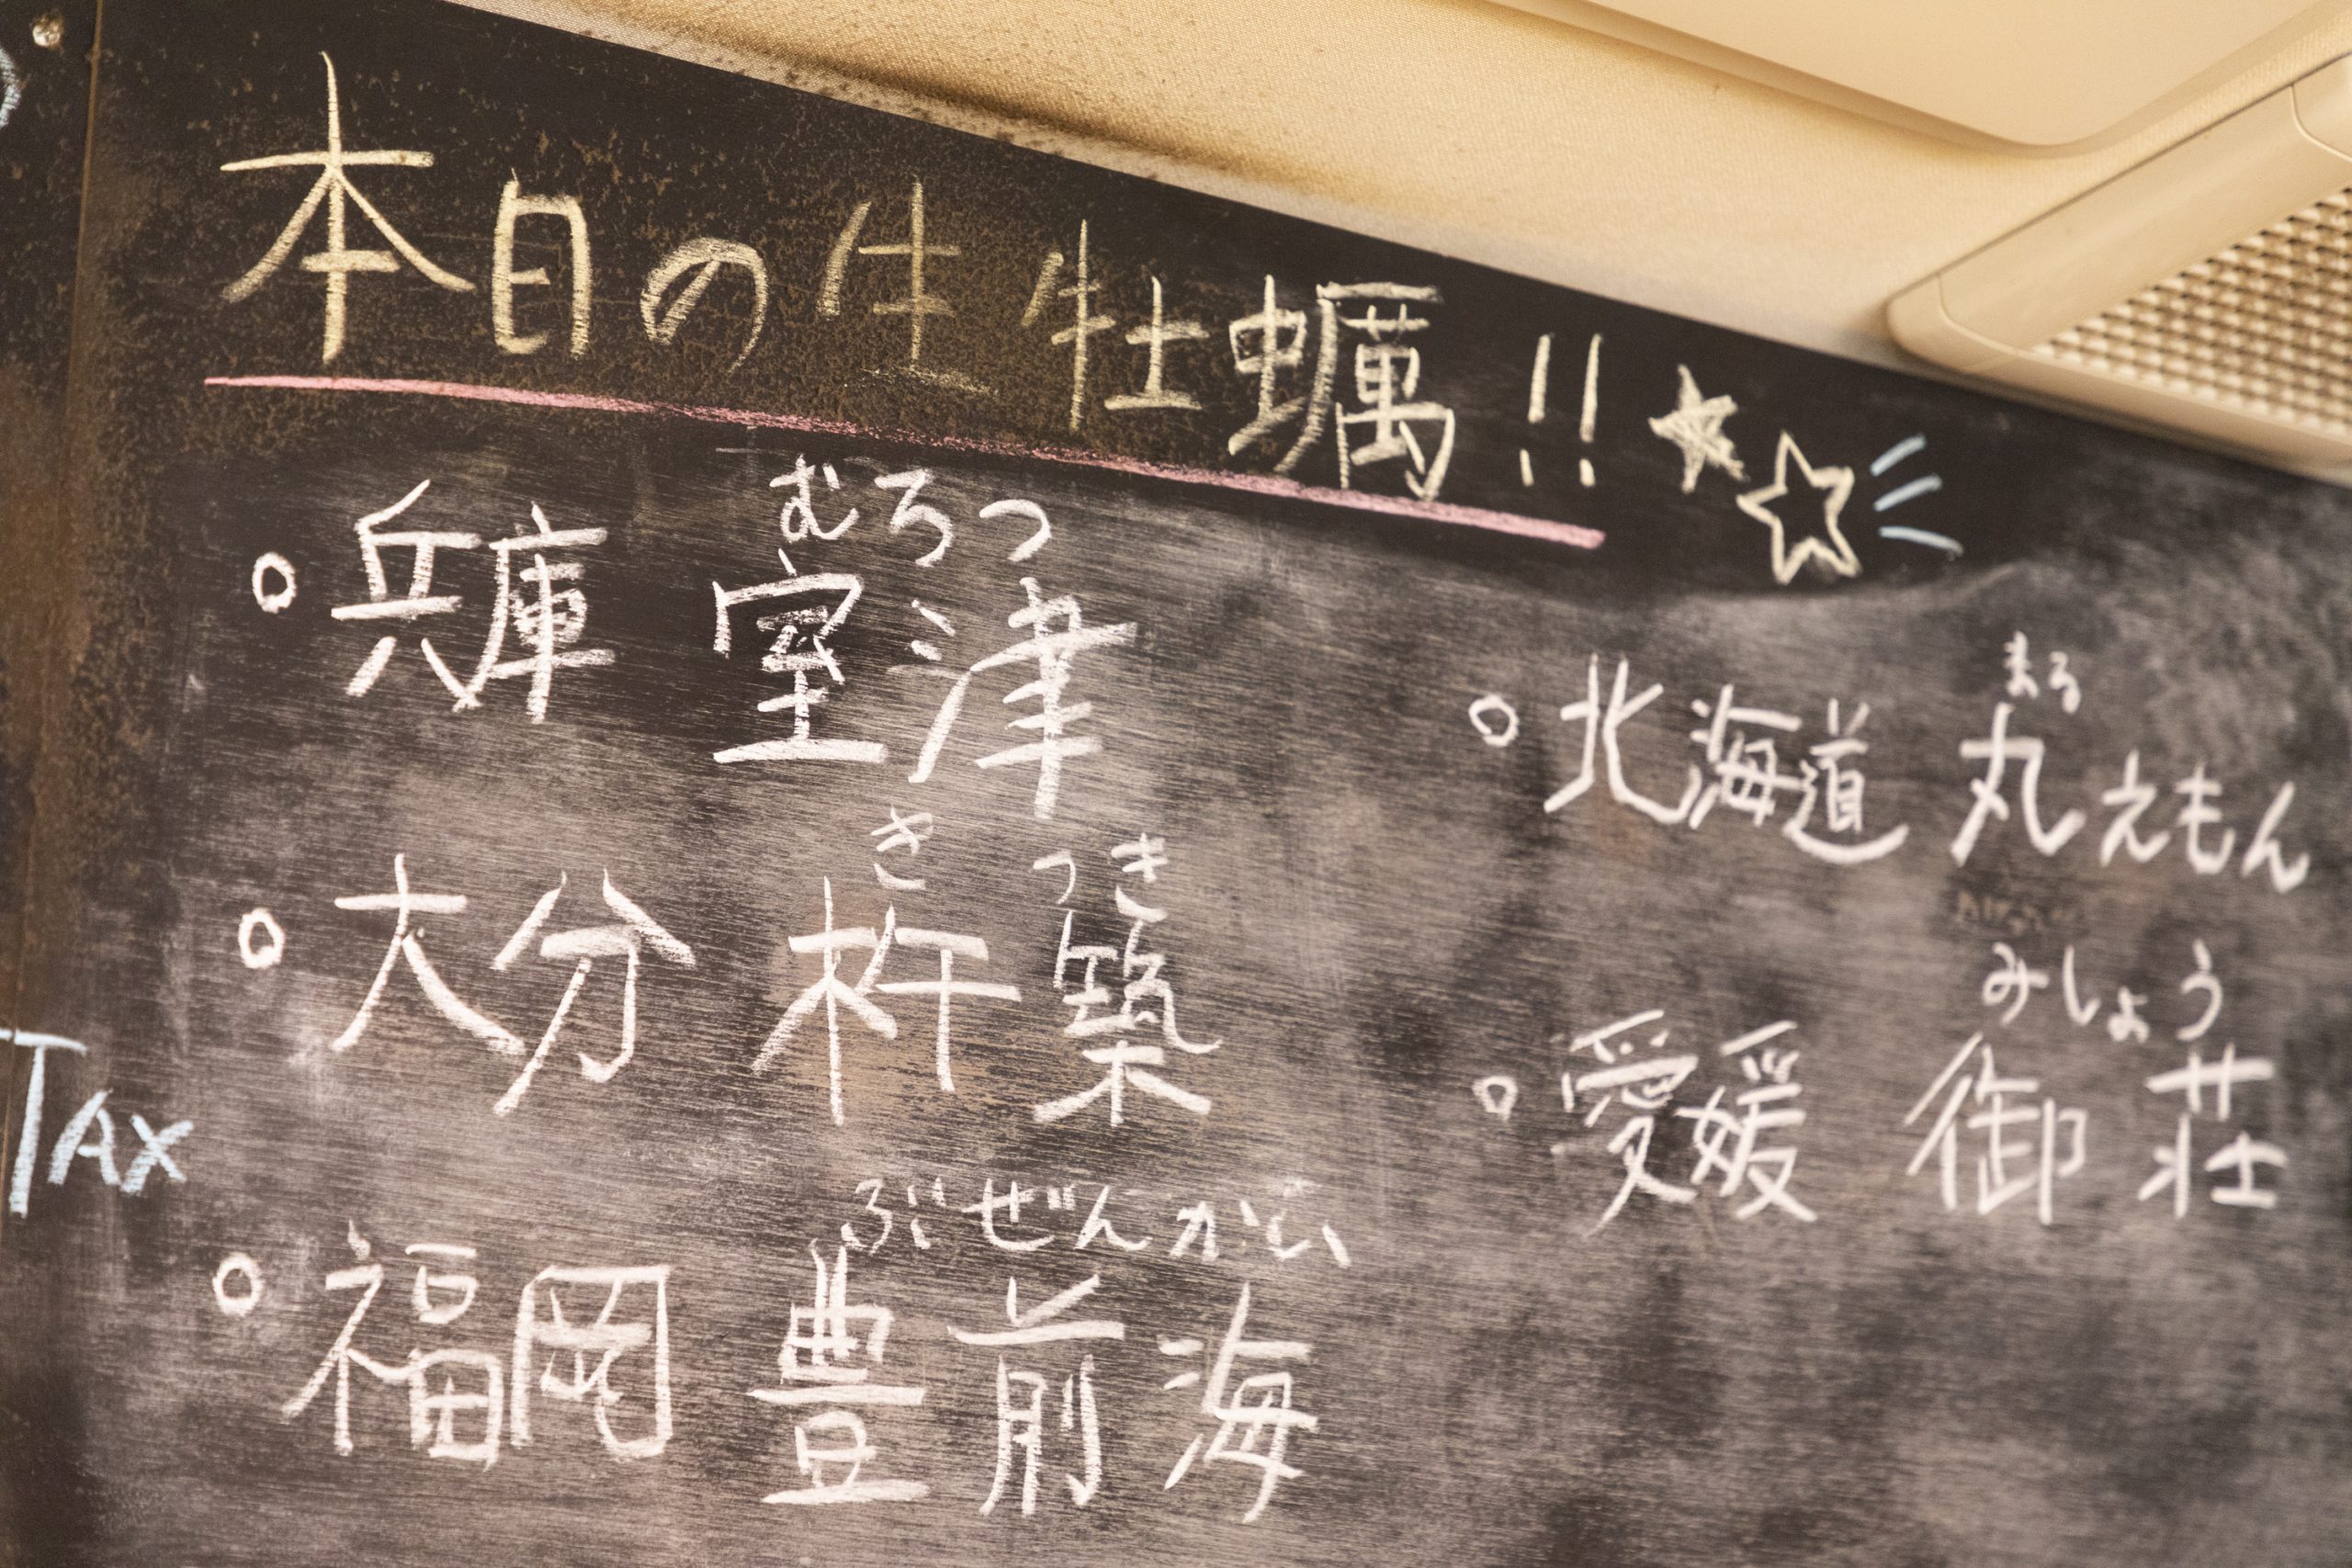 本日の生牡蠣!!
むろつ
兵庫 室津
きつき
大分 杵築
ぶぜんかい
福岡 豊前海
まる
北海道 丸えもん
みしょう
愛媛 御荘
TAX